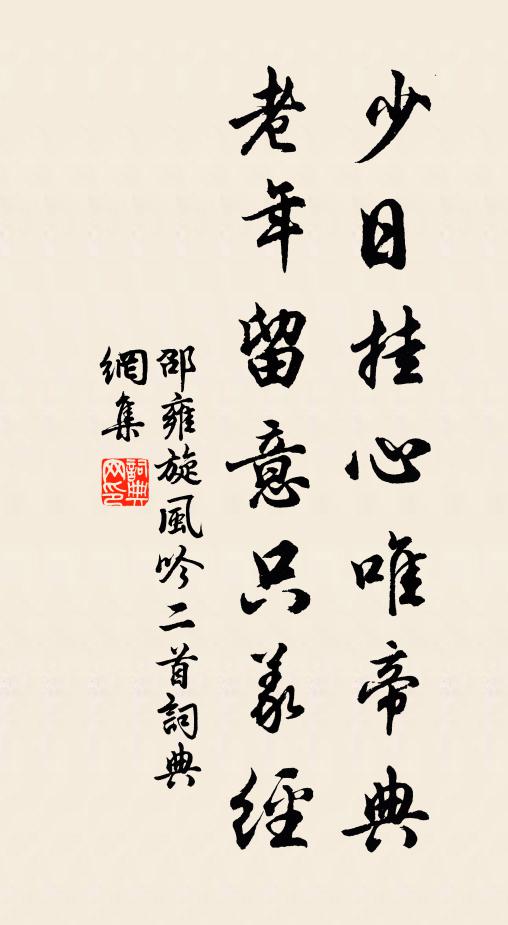 少日挂心唯帝典
老年留意只羲經
邵雍旋風吟二首詞典
網集
詞典
网印